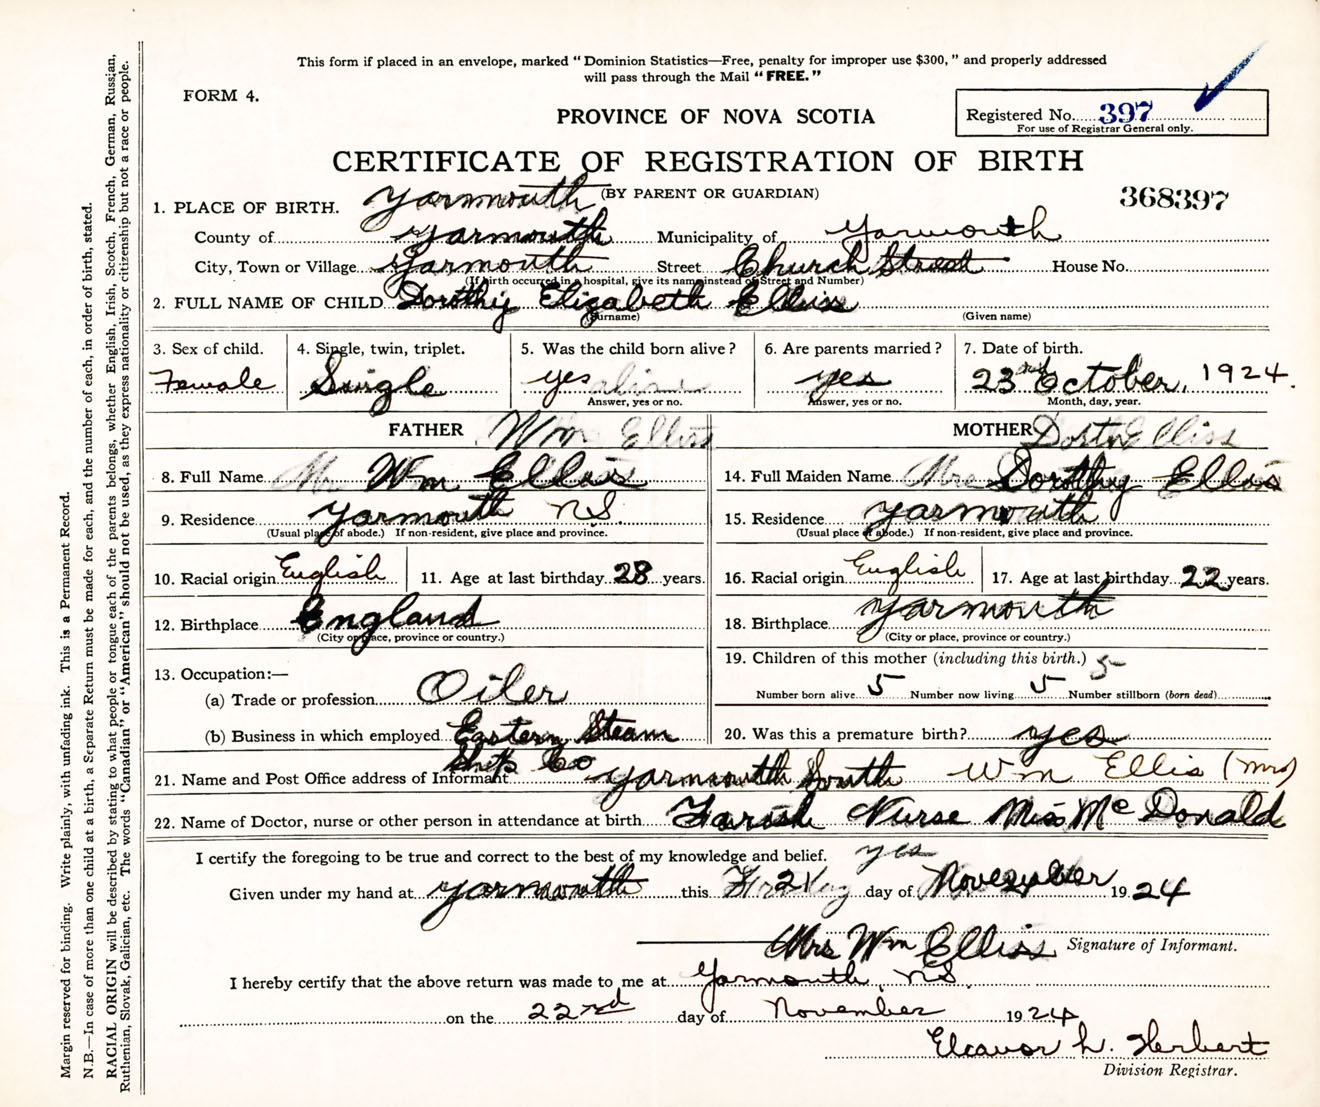 This form if placed in an envelope, marked "Dominion Statistics—Free, penalty for improper use $300," and properly addressed
will pass through the Mail "FREE."
FORM 4.
PROVINCE OF NOVA SCOTIA
Registered No. 397
For use of Registrar General only.
CERTIFICATE OF REGISTRATION OF BIRTH
(BY PARENT OR GUARDIAN)
368397
1. PLACE OF BIRTH. Yarmouth
County of Yarmouth Municipality of Yarmouth
City, Town or Village Yarmouth Street Church Street House No.
(If birth occurred in a hospital, give its name instead of Street and Number)
2. FULL NAME OF CHILD Dorothy Elizabeth Elliss
(Surname) (Given name)
3. Sex of child. 4. Single, twin, triplet. 5. Was the child born alive? 6. Are parents married? 7. Date of birth.
Female Single yes alive yes 23rd October, 1924.
Answer, yes or no. Answer, yes or no. Month, day, year.
FATHER Wm Elliss MOTHER Elliss
8. Full Name Mr Wm Elliss 14. Full Maiden Name Mrs Dorothy Elliss
9. Residence Yarmouth NS. 15. Residence Yarmouth
(Usual place of abode.) If non-resident, give place and province. (Usual place of abode.) If non-resident, give place and province.
10. Racial origin English 11. Age at last birthday 28 years. 16. Racial origin English 17. Age at last birthday 22 years.
12. Birthplace England 18. Birthplace Yarmouth
(City or place, province or country.) (City or place, province or country.)
13. Occupation:— 19. Children of this mother (including this birth.) 5
(a) Trade or profession Oiler Number born alive 5 Number now living 5 Number stillborn (born dead)
(b) Business in which employed Eastern Steam 20. Was this a premature birth? yes
Ship Co
21. Name and Post Office address of Informant Yarmouth South Wm Ellis (Mrs)
22. Name of Doctor, nurse or other person in attendance at birth Farish Nurse Miss McDonald
I certify the foregoing to be true and correct to the best of my knowledge and belief. yes
Given under my hand at Yarmouth this 21 day of November 1924
Mrs Wm Elliss Signature of Informant.
I hereby certify that the above return was made to me at Yarmouth, NS.
on the 22nd day of November 1924
Eleanor L. Herbert
Division Registrar.
Margin reserved for binding. Write plainly, with unfading ink. This is a Permanent Record.
N.B.—In case of more than one child at a birth, a Separate Return must be made for each, and the number of each, in order of birth, stated.
RACIAL ORIGIN will be described by stating to what people or tongue each of the parents belongs, whether English, Irish, Scotch, French, German, Russian,
Ruthenian, Slovak, Galician, etc. The words "Canadian" or "American" should not be used, as they express nationality or citizenship but not a race or people.